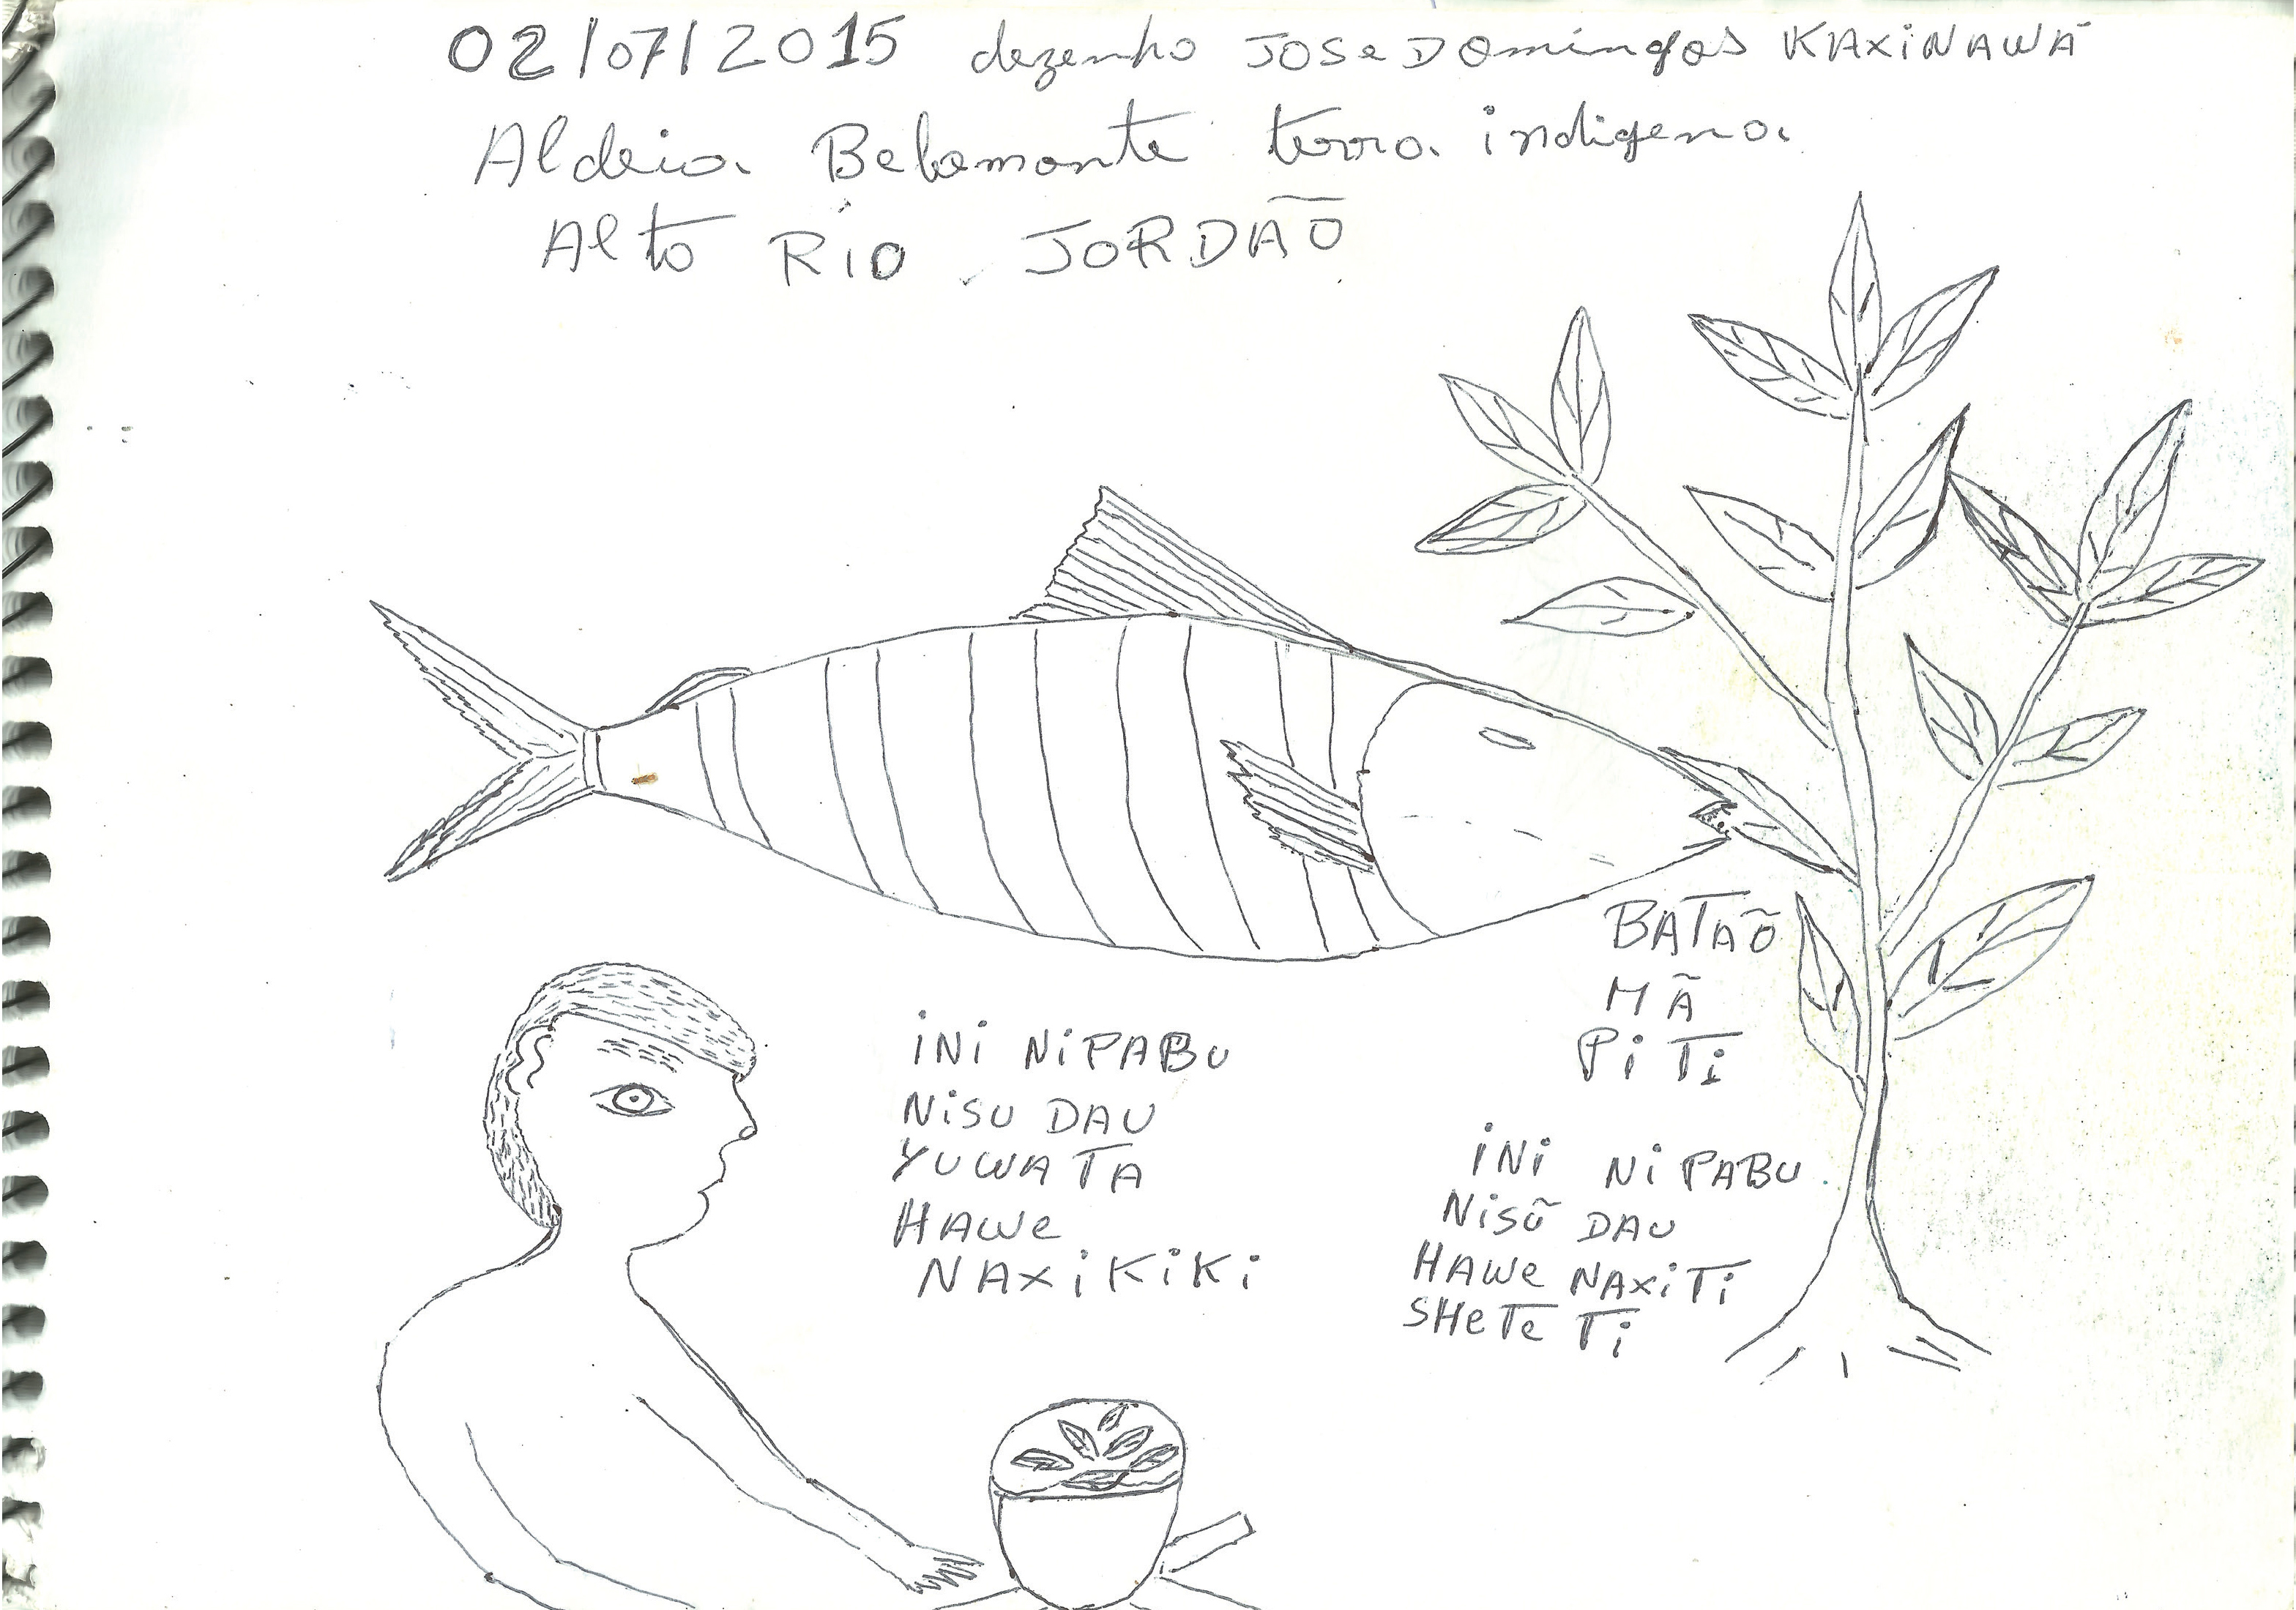 02/07/2015 dezenho JOSe DOmingos KAXiNAWÁ
Aldeia Belomonte terra indigena
Alto RiO JORDÃO
BATAÕ
MÃ
Pi Ti
iNi NiPABU
NiSU DAU
YUWATA
HAWe
NAXiKiKi
iNi NiPABU
NiSŨ DAU
HAWe NAXiTi
SHeTe Ti